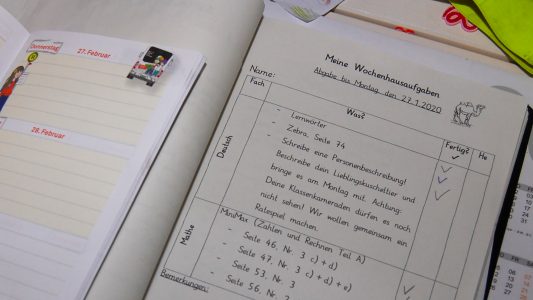 Donnerstag
27. Februar
28. Februar
Meine Wochenhausaufgaben
Abgabe bis Montag, den 27.1.2020
Name:
Fach
Was?
Fertig?
He
Deutsch
- Lernwörter
- Zebra, Seite 74
- Schreibe eine Personenbeschreibung!
Beschreibe dein Lieblingskuscheltier und
bringe es am Montag mit. Achtung:
Deine Klassenkameraden dürfen es noch
nicht sehen! Wir wollen gemeinsam ein
Ratespiel machen.
Mathe
MiniMax (Zahlen und Rechnen Teil A)
- Seite 46, Nr. 3 c) + d)
- Seite 47, Nr. 3 c) + d) + e)
- Seite 53, Nr. 3
- Seite 56, Nr.
Bemerkungen: